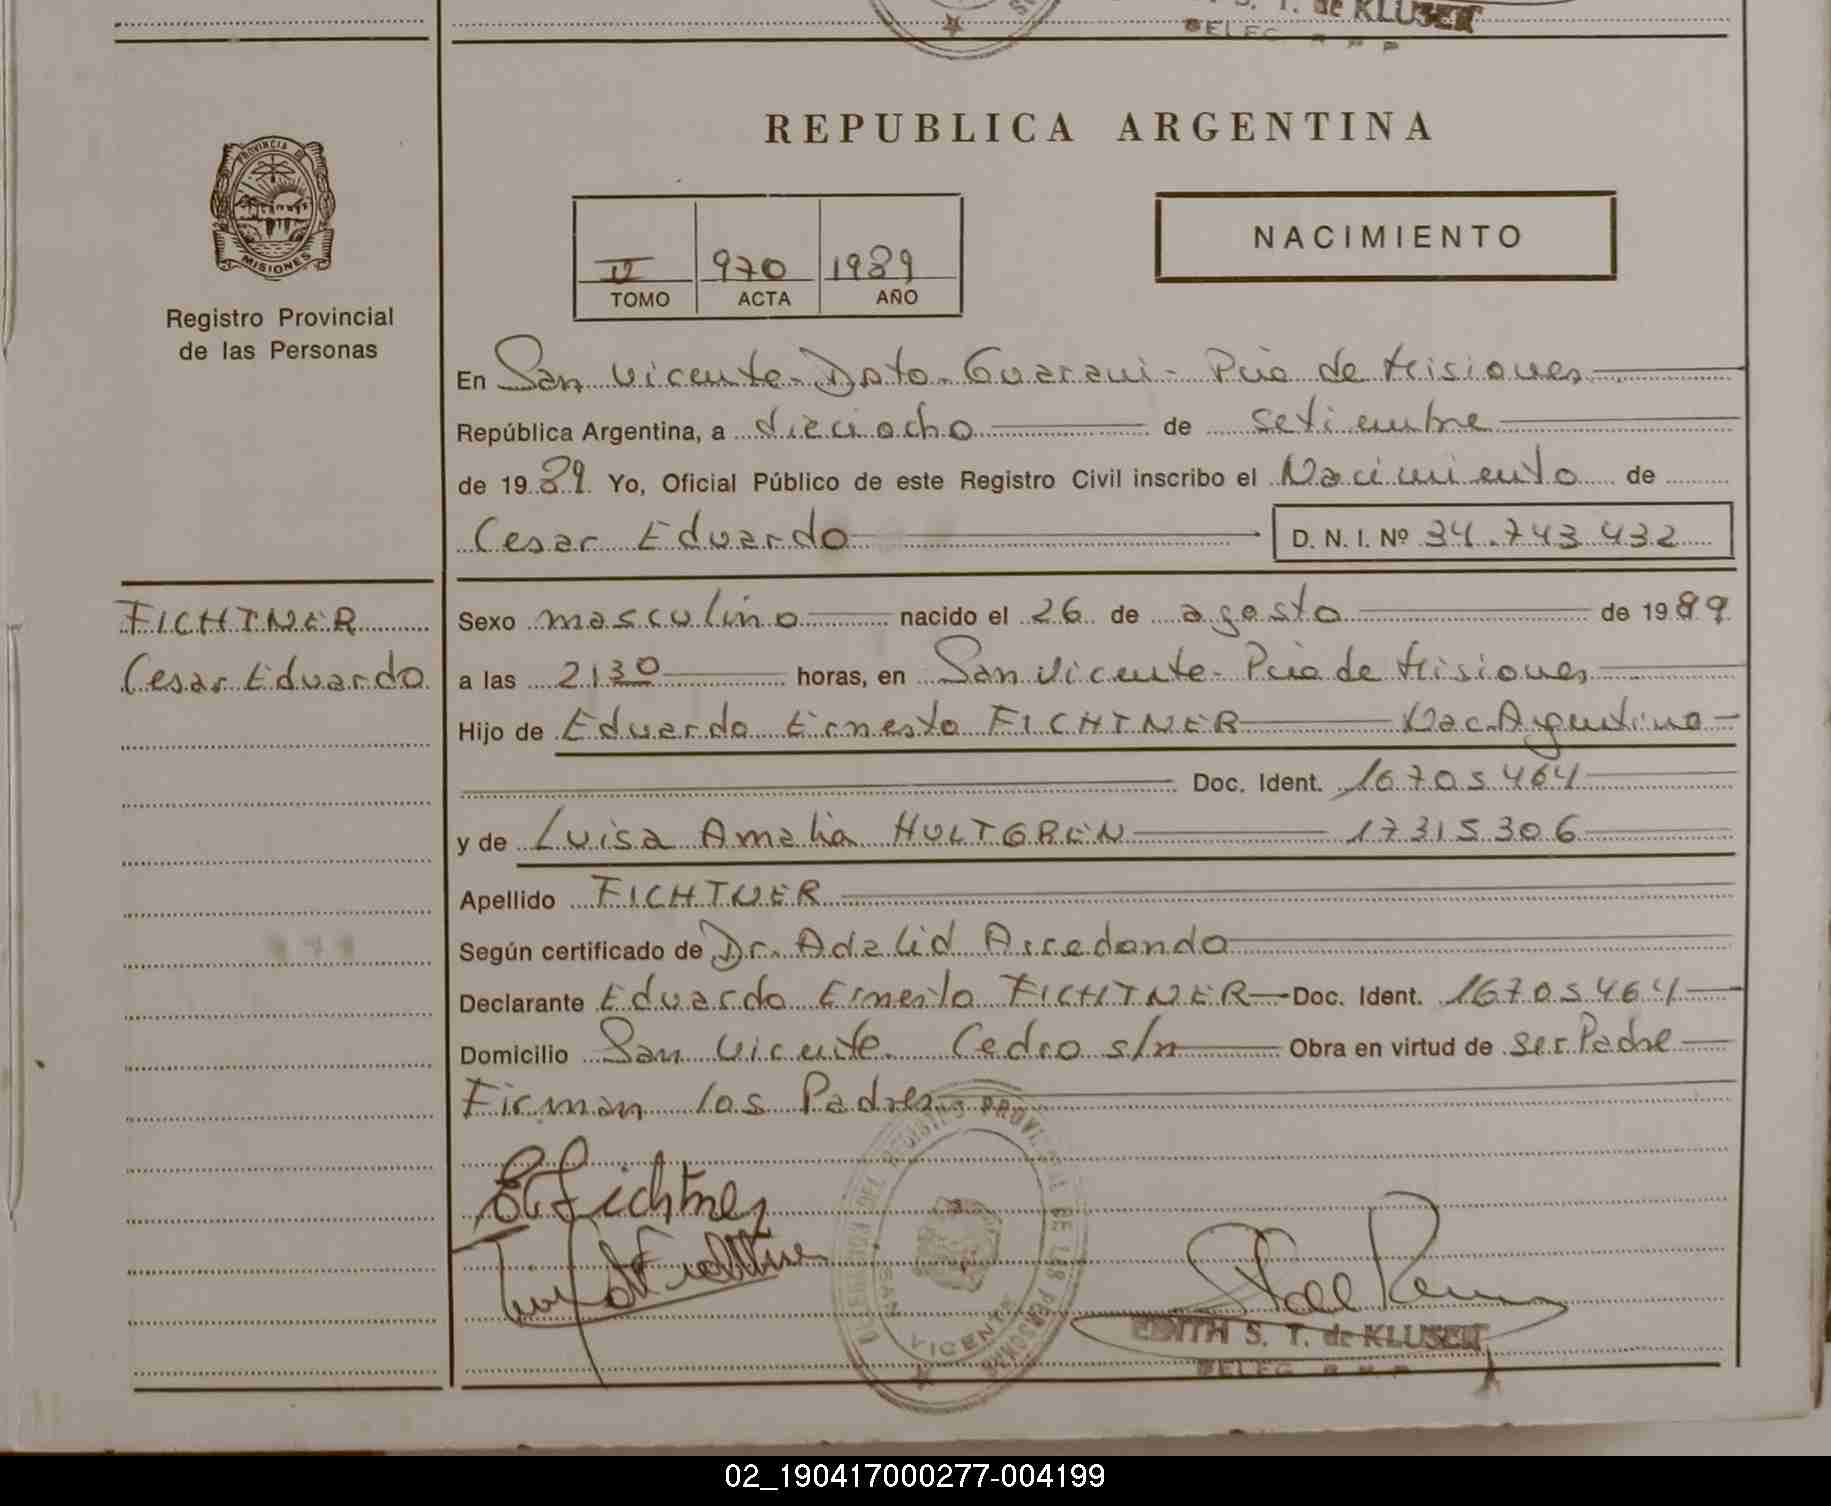 S. T. de KLUSER
DELEG. R P P
PROVINCIA DE
MISIONES
Registro Provincial
de las Personas
REPUBLICA ARGENTINA
II 970 1989
TOMO ACTA AÑO
NACIMIENTO
En San Vicente-Dpto-Guarani-Pcia de Misiones
República Argentina, a dieciocho de setiembre
de 1989 Yo, Oficial Público de este Registro Civil inscribo el Nacimiento de
Cesar Eduardo D. N. I. Nº 34.743.432
FICHTNER
Cesar Eduardo
Sexo masculino nacido el 26 de agosto de 1989
a las 2130 horas, en San Vicente-Pcia de Misiones
Hijo de Eduardo Ernesto FICHTNER Nac.Argentino
Doc. Ident. 16705464
y de Luisa Amalia HULTGREN 17315306
Apellido FICHTNER
Según certificado de Dr. Adalid Arredondo
Declarante Eduardo Ernesto FICHTNER Doc. Ident. 16705464
Domicilio San Vicente Cedro s/n Obra en virtud de ser Padre
Firman los Padres
E Fichtner
REGISTRO PROVINCIAL DE LAS PERSONAS
SAN VICENTE
EDITH S. T. de KLUSER
DELEG. R. P. P
02_190417000277-004199